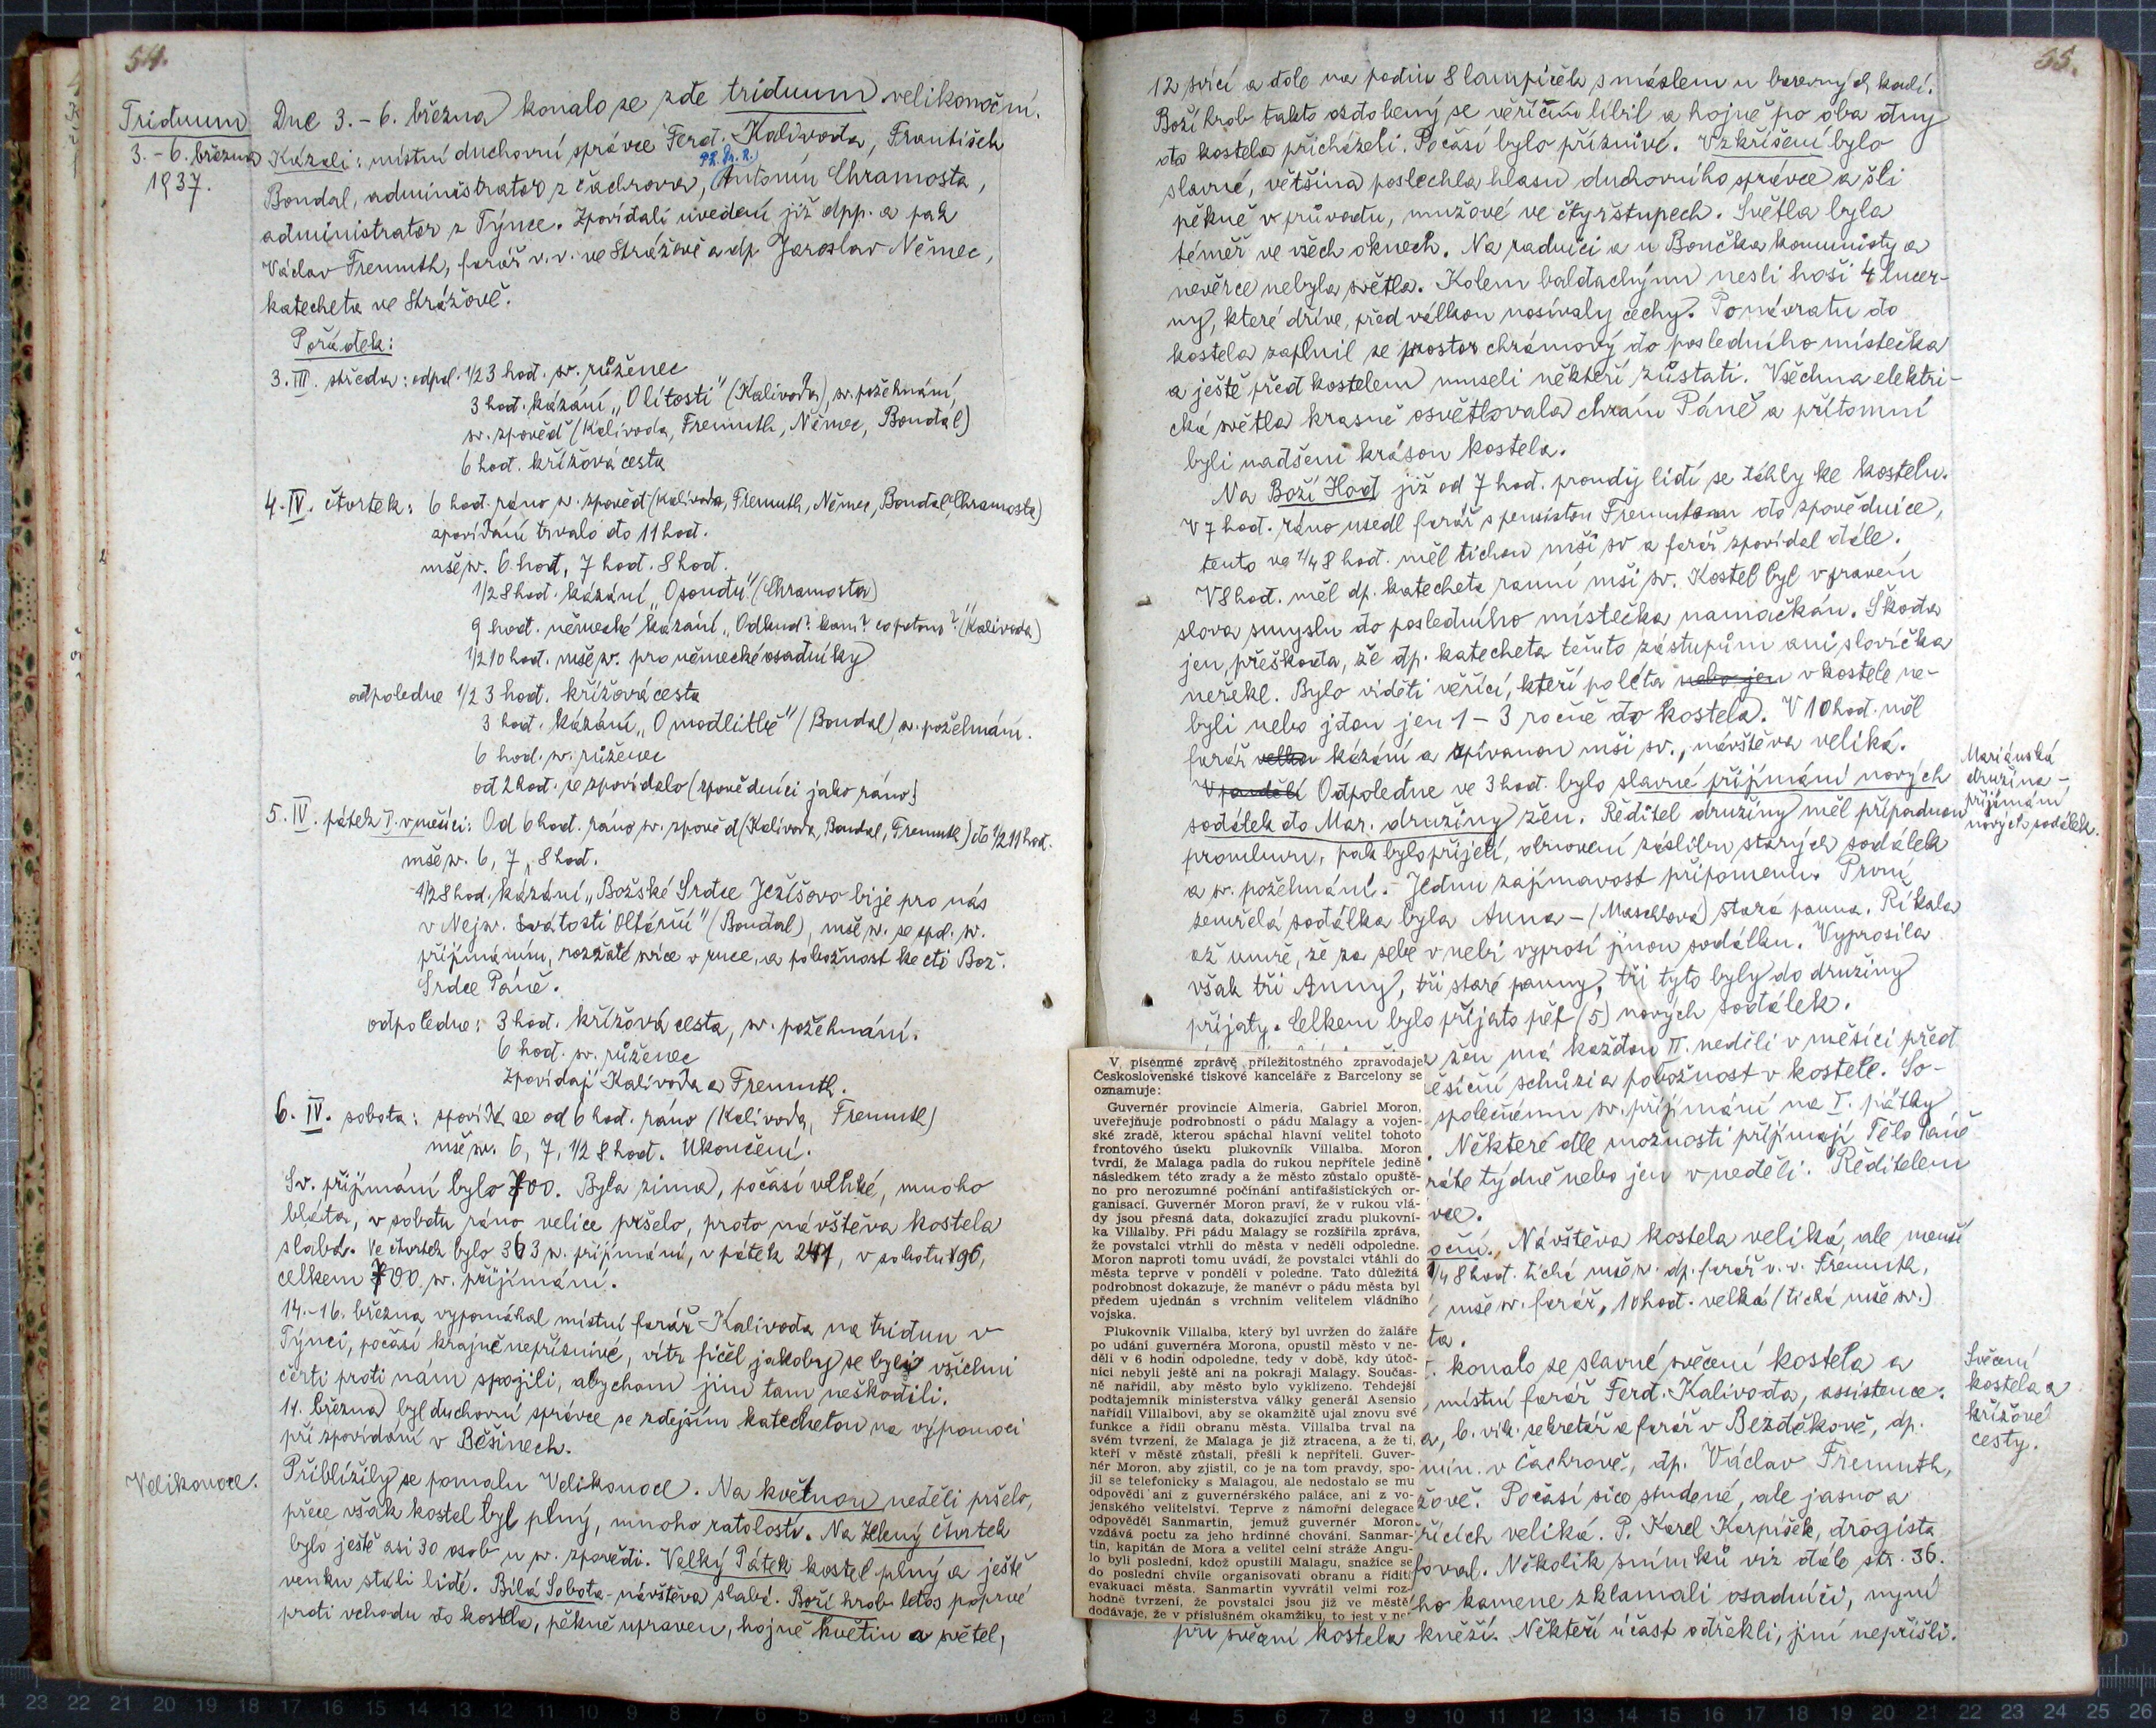 54.
Triduum
3.-6. března
1937.
Dne 3.-6. března konalo se zde triduum velikonoční.
Kázali: místní duchovní správce Ferd. Kalivoda, František
Bondal, administrator z Čachrova, Antonín Chramosta,
administrator z Týnce. Zpovídali uvedení již dpp. a pak
Václav Fremuth, farář v.v. ve Strážově a dp. Jaroslav Němec,
katecheta ve Strážově.
Pořádek:
3. III. středa: odpol. 1/2 3 hod. sv. růženec
3 hod. kázání „O lítosti" (Kalivoda), sv. požehnání,
sv. zpověď (Kalivoda, Fremuth, Němec, Bondal)
6 hod. křížová cesta
4. IV. čtvrtek: 6 hod. ráno sv. zpověď (Kalivoda, Fremuth, Němec, Bondal, Chramosta)
zpovídání trvalo do 11 hod.
mše sv. 6 hod, 7 hod. 8 hod.
1/2 8 hod. kázání „O soudu" (Chramosta)
9 hod. německé kázání „Odkud? kam? co potom?" (Kalivoda)
1/2 10 hod. mše sv. pro německé osadníky
odpoledne 1/2 3 hod. křížová cesta
3 hod. kázání „O modlitbě" (Bondal), sv. požehnání.
6 hod. sv. růženec
od 2 hod. se zpovídalo (zpovědníci jako ráno)
5. IV. pátek I. v měsíci: Od 6 hod. ráno sv. zpověď (Kalivoda, Bondal, Fremuth) do 1/2 11 hod.
mše sv. 6, 7, 8 hod.
1/2 8 hod. kázání „Božské Srdce Ježíšovo bije pro nás
v Nejsv. Svátosti Oltářní" (Bondal), mše sv. se spol. sv.
přijímáním, rozžaté svíce v ruce, a pobožnost ke cti Bož.
Srdce Páně.
odpoledne: 3 hod. křížová cesta, sv. požehnání.
6 hod. sv. růženec
Zpovídají Kalivoda a Fremuth.
6. IV. sobota: zpovídá se od 6 hod. ráno (Kalivoda, Fremuth)
mše sv. 6, 7, 1/2 8 hod. Ukončení.
Sv. přijímání bylo 700. Byla zima, počasí vlhké, mnoho
bláta, v sobotu ráno velice pršelo, proto návštěva kostela
slabá. Ve čtvrtek bylo 363 sv. přijímání, v pátek 241, v sobotu 96,
celkem 700 sv. přijímání.
14.-16. března vypomáhal místní farář Kalivoda na triduu v
Týnci, počasí krajně nepříznivé, vítr fičel jakoby se byli všichni
čerti proti nám spojili, abychom jim tam neškodili.
14. března byl duchovní správce se zdejším katechetou na výpomoci
při zpovídání v Běšinech.
Velikonoce.
Přiblížily se pomalu Velikonoce. Na květnou neděli pršelo,
přece však kostel byl plný, mnoho ratolestí. Na Zelený čtvrtek
bylo ještě asi 30 osob u sv. zpovědi. Velký Pátek kostel plný a ještě
venku stáli lidé. Bílá Sobota - návštěva slabá. Boží hrob letos poprvé
proti vchodu do kostela, pěkně upraven, hojně květin a světel,
55.
12 svící a dole na podiu 8 lampiček s máslem u barevných koulí.
Boží hrob takto ozdobený se věřícím líbil a hojně po oba dny
do kostela přicházeli. Počasí bylo příznivé. Vzkříšení bylo
slavné, většina poslechla hlasu duchovního správce a šli
pěkně v průvodu, mužové ve čtyřstupech. Světla byla
téměř ve všech oknech. Na radnici a u Bončka komunisty a
nevěrce nebyla světla. Kolem baldachýnu nesli hoši 4 lucer-
ny, které dříve, před válkou nosívaly cechy. Po návratu do
kostela zaplnil se prostor chrámový do posledního místečka
a ještě před kostelem museli někteří zůstati. Všechna elektri-
cká světla krásně osvětlovala chrám Páně a přítomní
byli nadšeni krásou kostela.
Na Boží Hod již od 7 hod. proudy lidí se táhly ke kostelu.
V 7 hod. ráno usedl farář s pensistou Fremuthem do zpovědnice,
tento ve 1/4 8 hod. měl tichou mši sv a farář zpovídal dále.
V 8 hod. měl dp. katecheta ranní mši sv. Kostel byl v pravém
slova smyslu do posledního místečka namačkán. Škoda
jen přeškoda, že dp. katecheta těmto zástupům ani slovíčka
neřekl. Bylo viděti věřící, kteří po léta nebo jen v kostele ne-
byli nebo jdou jen 1-3 ročně do kostela. V 10 hod. měl
farář velkou kázání a zpívanou mši sv., návštěva veliká.
V pondělí Odpoledne ve 3 hod. bylo slavné přijímání nových
sodálek do Mar. družiny žen. Ředitel družiny měl případnou
promluvu, pak bylo přijetí, obnovení zásvětu starých sodálek
a sv. požehnání. - Jednu zajímavost připomenu. První
zemřelá sodálka byla Anna - (Maschlová) stará panna. Říkala
až umře, že za sebe v nebi vyprosí jinou sodálku. Vyprosila
však tři Anny, tři staré panny, tři tyto byly do družiny
přijaty. Celkem bylo přijato pět (5) nových sodálek.
Mariánská
družina -
přijímání
nových sodálek.
žen má každou II. neděli v měsíci před
ěsíční schůzi a pobožnost v kostele. So-
společnému sv. přijímání na I. pátky
. Některé dle možnosti přijímají Tělo Páně
ráte týdně nebo jen v neděli. Ředitelem
vce.
oční. Návštěva kostela veliká, ale menší
1/4 8 hod. tichá mše sv. dp. farář v.v. Fremuth,
mše sv. farář, 10 hod. velká (tichá mše sv.)
ta.
. konalo se slavné svěcení kostela a
místní farář Ferd. Kalivoda, assistence:
a, b. vik. sekretář a farář v Bezděkově, dp.
min. v Čachrově, dp. Václav Fremuth,
žově. Počasí sice studené, ale jasno a
řících veliká. P. Karel Karpíšek, drogista
foval. Několik snímků viz dále str. 36.
ho kamene zklamali osadníci, nyní
při svěcení kostela kněží. Někteří účast odřekli, jiní nepřišli.
Svěcení
kostela a
křížové
cesty.
V písemné zprávě příležitostného zpravodaje
Československé tiskové kanceláře z Barcelony se
oznamuje:
Guvernér provincie Almeria, Gabriel Moron,
uveřejňuje podrobnosti o pádu Malagy a vojen-
ské zradě, kterou spáchal hlavní velitel tohoto
frontového úseku plukovník Villalba. Moron
tvrdí, že Malaga padla do rukou nepřítele jedině
následkem této zrady a že město zůstalo opuště-
no pro nerozumné počínání antifašistických or-
ganisací. Guvernér Moron praví, že v rukou vlá-
dy jsou přesná data, dokazující zradu plukovní-
ka Villalby. Při pádu Malagy se rozšířila zpráva,
že povstalci vtrhli do města v neděli odpoledne.
Moron naproti tomu uvádí, že povstalci vtáhli do
města teprve v pondělí v poledne. Tato důležitá
podrobnost dokazuje, že manévr o pádu města byl
předem ujednán s vrchním velitelem vládního
vojska.
Plukovník Villalba, který byl uvržen do žaláře
po udání guvernéra Morona, opustil město v ne-
děli v 6 hodin odpoledne, tedy v době, kdy útoč-
níci nebyli ještě ani na pokraji Malagy. Součas-
ně nařídil, aby město bylo vyklizeno. Tehdejší
podtajemník ministerstva války generál Asensio
nařídil Villalbovi, aby se okamžitě ujal znovu své
funkce a řídil obranu města. Villalba trval na
svém tvrzení, že Malaga je již ztracena, a že ti,
kteří v městě zůstali, přešli k nepříteli. Guver-
nér Moron, aby zjistil, co je na tom pravdy, spo-
jil se telefonicky s Malagou, ale nedostalo se mu
odpovědi ani z guvernérského paláce, ani z vo-
jenského velitelství. Teprve z námořní delegace
odpověděl Sanmartin, jemuž guvernér Moron
vzdává poctu za jeho hrdinné chování. Sanmar-
tin, kapitán de Mora a velitel celní stráže Angu-
lo byli poslední, kdož opustili Malagu, snažíce se
do poslední chvíle organisovati obranu a říditi
evakuaci města. Sanmartin vyvrátil velmi roz-
hodně tvrzení, že povstalci jsou již ve městě
dodávaje, že v příslušném okamžiku, to jest v ne-